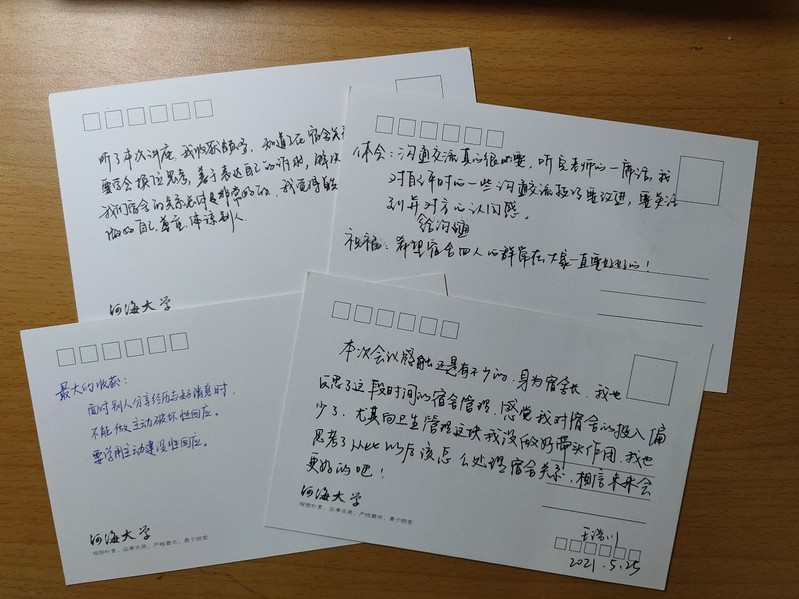 听了本次讲座,我收获颇丰,知道了在宿舍关
要学会换位思考,善于表达自己的诉求,解决
我们宿舍的关系总体是非常好的,我觉得能
做好自己,尊重、体谅别人
河海大学
体会:沟通交流真的很重要,听 老师的一席话,我
对自己平时的一些沟通交流技巧要改进,要关注
到并对方心认同感
给沟通
祝福:希望宿舍四人的群体在大家一直要好好的!
最大的收获:
面对别人分享经历与好消息时,
不能做主动破坏性回应。
要学用主动建设性回应。
河海大学
艰苦朴素、实事求是、严格要求、勇于探索
本次会议感触还是有不少的,身为宿舍长,我也
反思了这段时间的宿舍管理,感觉我对宿舍的投入偏
少了,尤其向卫生管理这块我没做好带头作用,我也
思考了 以后该怎么处理宿舍关系,相信未来会
更好的吧!
河海大学
艰苦朴素、实事求是、严格要求、勇于探索
王浩川
2021.5.25